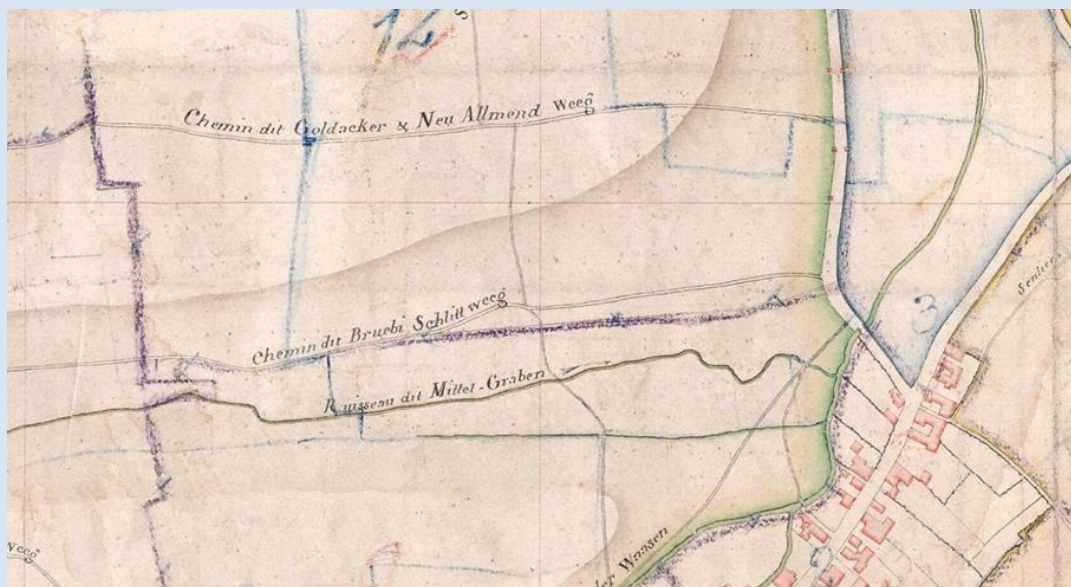 12
Chemin dit Goldacker & Neu Allmend Weeg
Chemin dit Bruebi Schlitt weeg
3
Ruisseau dit Mittel-Graben
der Waasen
Weeg